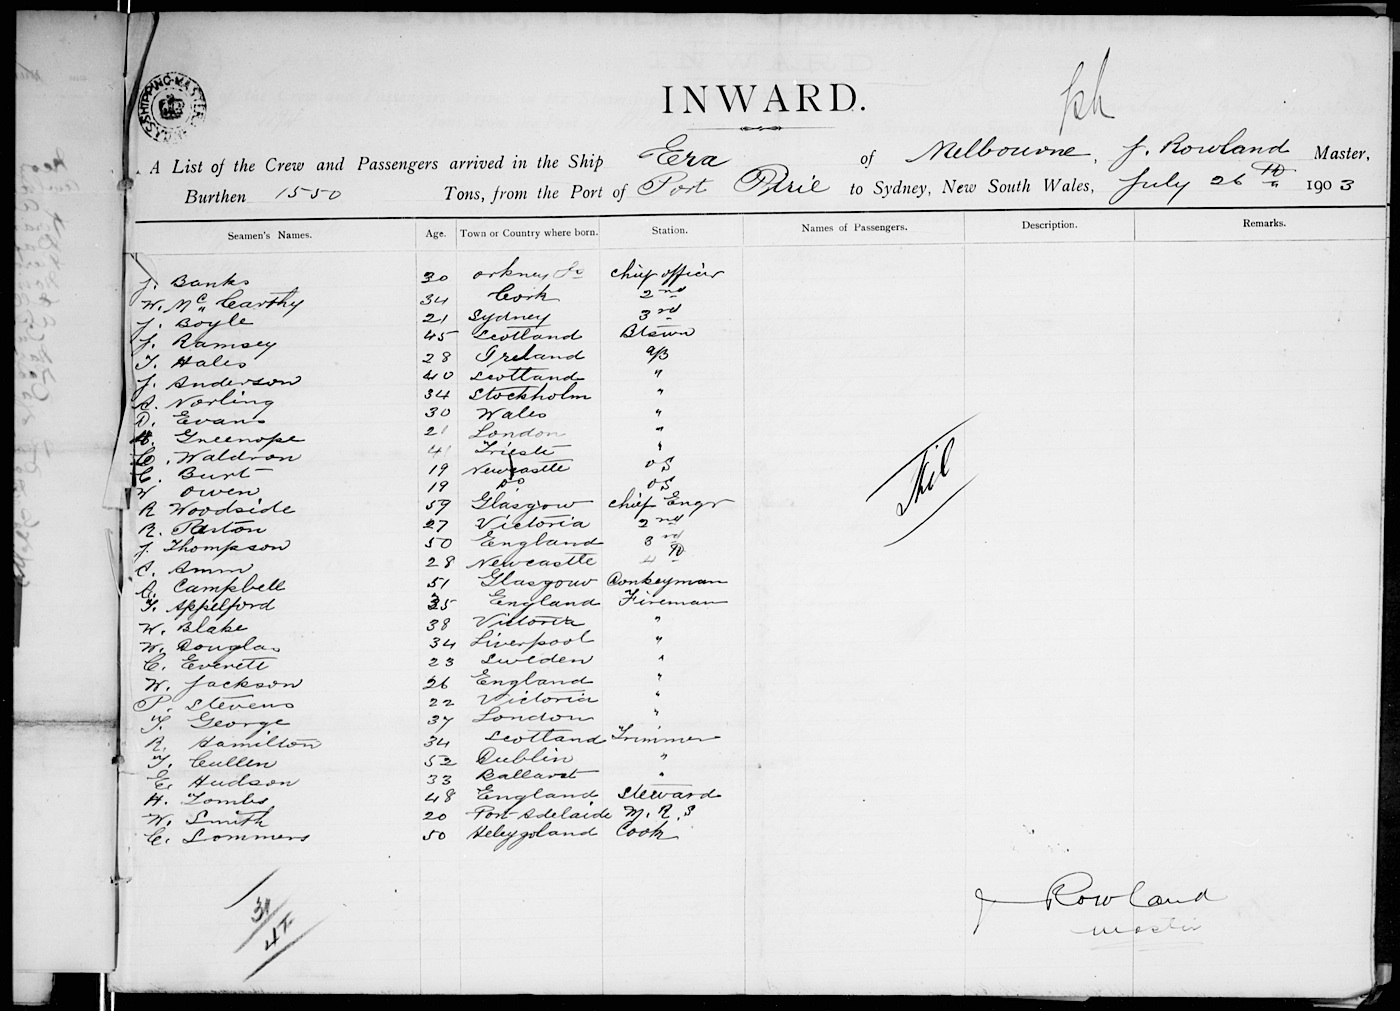 INWARD.
A List of the Crew and Passengers arrived in the Ship Era of Melbourne, J. Rowland Master,
Burthen 1550 Tons, from the Port of Port Pirie to Sydney, New South Wales, July 26th 1903
Seamen's Names. Age. Town or Country where born. Station. Names of Passengers. Description. Remarks.
J. Banks 30 Orkney Is Chief officer
W. McCarthy 34 Cork 2nd
J. Boyle 21 Sydney 3rd
J. Ramsey 45 Scotland Btswn
T. Hales 28 Ireland A/B
J. Anderson 40 Scotland "
A. Norling 34 Stockholm "
D. Evans 30 Wales "
Greenope 21 London "
C. Waldron 41 Trieste "
C. Burt 19 Newcastle OS
W Owen 19 Do OS
R Woodside 59 Glasgow Chief Engr
R. Paxton 27 Victoria 2nd
J. Thompson 50 England 3rd
A. Amm 28 Newcastle 4th
A. Campbell 51 Glasgow Donkeyman
T. Appelford 35 England Fireman
W. Blake 38 Victoria "
W. Douglas 34 Liverpool "
C. Everett 23 Sweden "
W. Jackson 26 England "
P. Stevens 22 Victoria "
T. George 37 London "
R. Hamilton 34 Scotland Trimmer
T. Cullen 52 Dublin "
E. Hudson 33 Ballarat "
H. Tombs 48 England Steward
W. Smith 20 Port Adelaide M.R.S
C. Sommers 50 Heleygoland Cook
31
J Rowland
Master